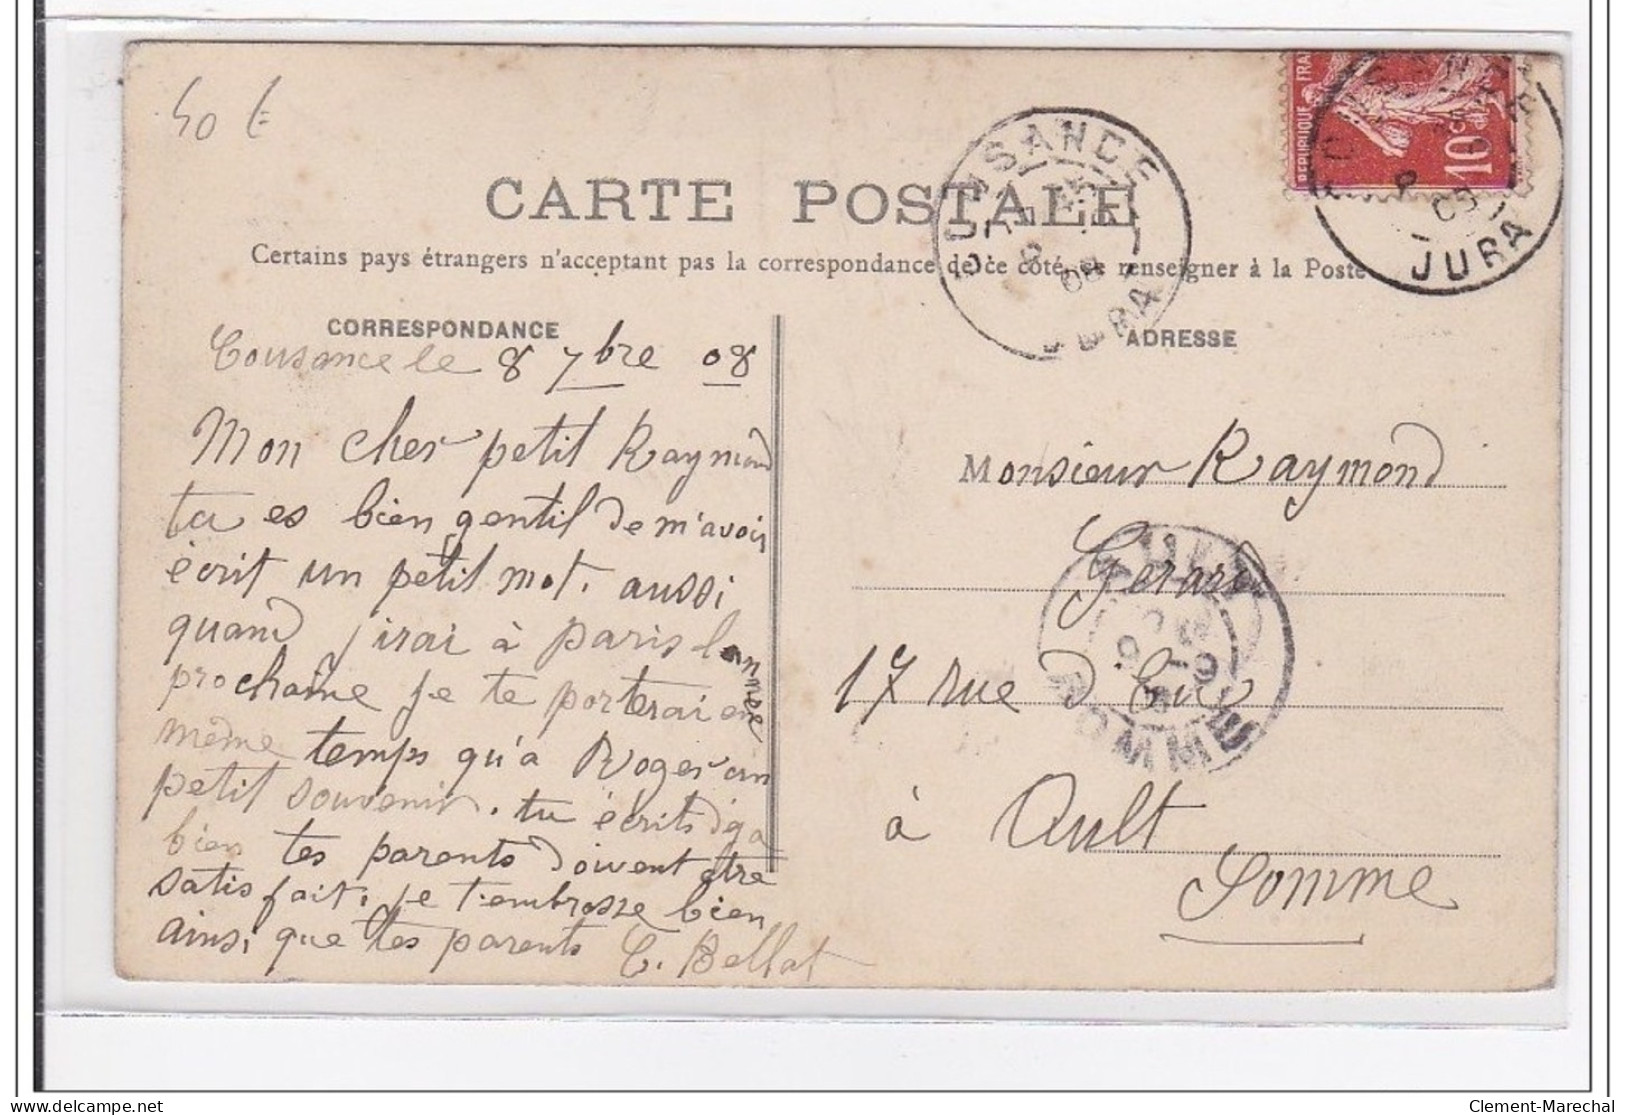 40 €
CARTE POSTALE
Certains pays étrangers n'acceptant pas la correspondance de ce côté, se renseigner à la Poste
REPUBLIQUE FRA
10c
COUSANCE
8
08
JURA
COUSANCE
8
JURA
CORRESPONDANCE
Cousance le 8 7bre 08
Mon cher petit Raymond
tu es bien gentil de m'avoir
écrit un petit mot. aussi
quand j irai à paris l année
prochaine je te porterai en
même temps qu'a Roger un
petit souvenir. tu écrits déga
bien tes parents doivent être
satisfait. je t'embrasse bien
ainsi que tes parents C. Bellat
ADRESSE
Monsieur Raymond
Gerard
17 rue d'Eu
à Ault
Somme
AULT
SOMME
Clement-Marechal